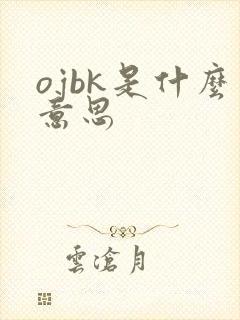 ojbk是什麼
意思
雲滄月